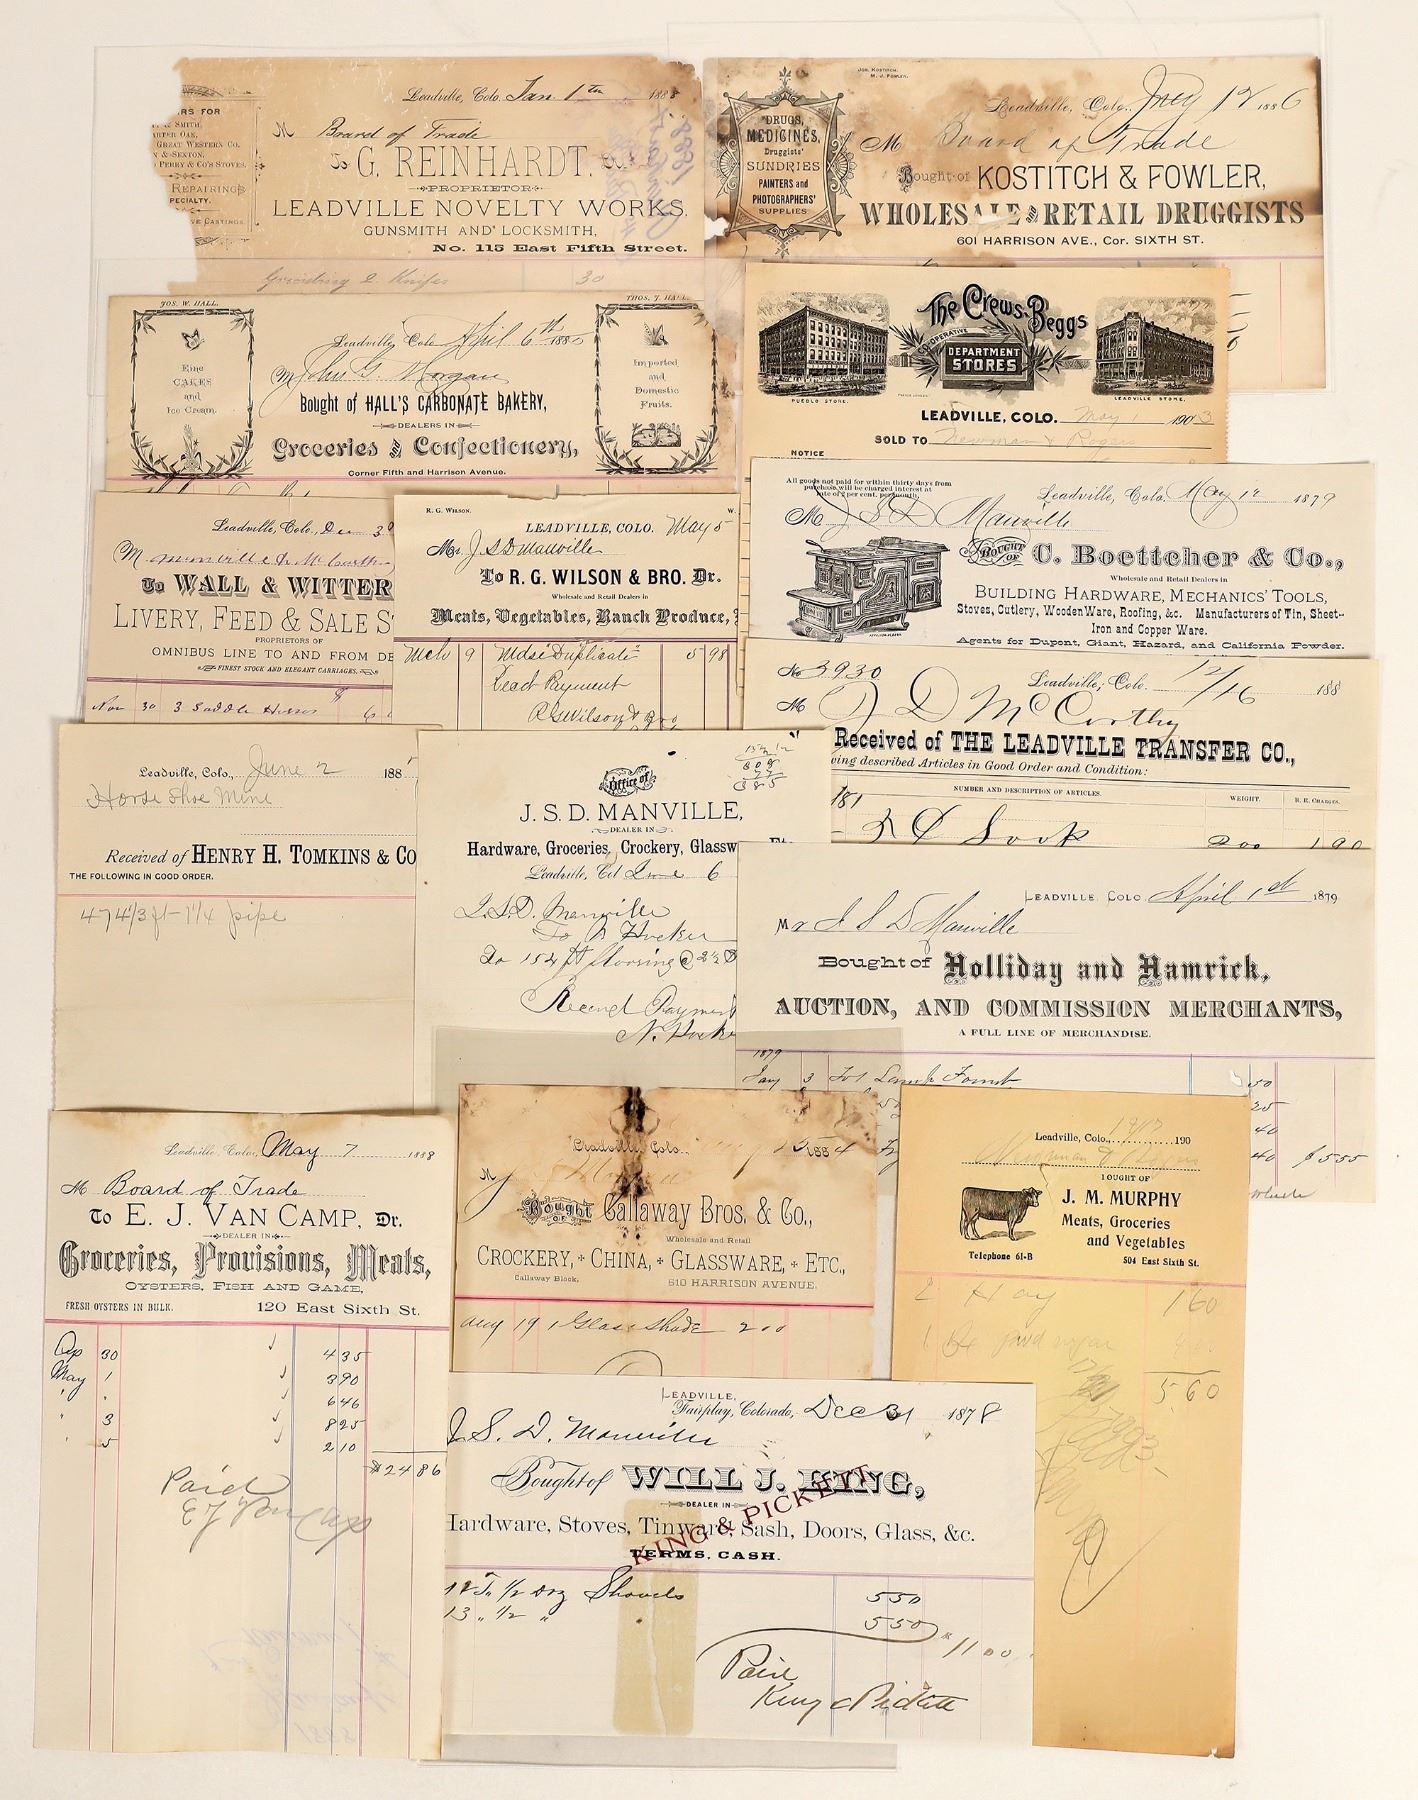 RS FOR
SMITH,
ARTER OAK,
GREAT WESTERN CO.
N & SEXTON,
PERRY & CO'S STOVES.
REPAIRING
PECIALTY.
VE CASTINGS.
Leadville, Colo. Jan. 1th 1888
M Board of Trade
To G. REINHARDT, Dr.
PROPRIETOR
LEADVILLE NOVELTY WORKS,
GUNSMITH AND LOCKSMITH,
No. 115 East Fifth Street.
Grinding 2 Knifes 30
JOS. KOSTITCH.
M. J. FOWLER.
DRUGS,
MEDICINES,
Druggists'
SUNDRIES
PAINTERS and
PHOTOGRAPHERS'
SUPPLIES
Leadville, Colo. 1886
M Board of Trade
Bought of KOSTITCH & FOWLER,
WHOLESALE AND RETAIL DRUGGISTS
601 HARRISON AVE., Cor. SIXTH ST.
JOS. W. HALL.
THOS. J. HALL.
Fine
CAKES
and
Ice Cream.
Imported
and
Domestic
Fruits.
Leadville, Colo. April 6th 188
M John G. Morgan
Bought of HALL'S CARBONATE BAKERY,
DEALERS IN
Groceries and Confectionery,
Corner Fifth and Harrison Avenue.
The Crews-Beggs
CO-OPERATIVE
DEPARTMENT
STORES
PUEBLO STORE.
LEADVILLE STORE.
LEADVILLE, COLO. May 1 1903
SOLD TO Newman & Rogers
NOTICE
All goods not paid for within thirty days from
purchase, will be charged interest at
rate of 2 per cent. per month.
Leadville, Colo. May 12 1879
M J S D Manville
BOUGHT OF C. Boettcher & Co.,
Wholesale and Retail Dealers in
BUILDING HARDWARE, MECHANICS' TOOLS,
Stoves, Cutlery, Wooden Ware, Roofing, &c. Manufacturers of Tin, Sheet-
Iron and Copper Ware.
Agents for Dupont, Giant, Hazard, and California Powder.
Leadville, Colo., Dec 3
M Manville & McCarthy
To WALL & WITTER
LIVERY, FEED & SALE S
PROPRIETORS OF
OMNIBUS LINE TO AND FROM DE
FINEST STOCK AND ELEGANT CARRIAGES.
Nov 30 3 Saddle Horses
R. G. WILSON. W.
LEADVILLE, COLO. May 5
Mr J S D Manville
To R. G. WILSON & BRO. Dr.
Wholesale and Retail Dealers in
Meats, Vegetables, Ranch Produce,
Mch 9 Mdse Duplicate 5 98
Payment
R G Wilson & Bro
No 3930 Leadville, Colo. 12/16 188
M J D McCarthy
Received of THE LEADVILLE TRANSFER CO.,
ving described Articles in Good Order and Condition:
NUMBER AND DESCRIPTION OF ARTICLES. WEIGHT. R. R. CHARGES.
181
200 1 90
Leadville, Colo., June 2 188
Horse Shoe Mine
Received of HENRY H. TOMKINS & CO
THE FOLLOWING IN GOOD ORDER.
474 1/3 ft - 1 1/4 pipe
Office of
J. S. D. MANVILLE,
DEALER IN
Hardware, Groceries, Crockery, Glassw
Leadville, Col June 6
J. S. D. Manville
To N Hocker
To 154 ft flooring @ 2 1/2
Received Payment
N. Hocke
LEADVILLE, COLO. April 1st 1879
Mr J S D Manville
Bought of Holliday and Hamrick,
AUCTION, AND COMMISSION MERCHANTS,
A FULL LINE OF MERCHANDISE.
1879
Jany 3 To 1 Lamp 50
25
40
40 $5.55
Leadville, Colo., May 7 1888
M Board of Trade
To E. J. VAN CAMP, Dr.
DEALER IN
Groceries, Provisions, Meats,
OYSTERS, FISH AND GAME,
FRESH OYSTERS IN BULK. 120 East Sixth St.
Ap 30 4 35
May 1 3 90
" " 6 46
" 3 8 25
" 5 2 10
$24 86
Paid
E J Van Camp
Leadville, Colo. 1884
M
Bought OF Callaway Bros. & Co.,
Wholesale and Retail
CROCKERY, CHINA, GLASSWARE, ETC.,
Callaway Block, 510 HARRISON AVENUE.
Aug 19 1 Glass Shade 2 00
Leadville, Colo., 190
Newman & Rogers
BOUGHT OF
J. M. MURPHY
Meats, Groceries
and Vegetables
Telephone 61-B 504 East Sixth St.
2 Hay 1 60
5 60
LEADVILLE,
Fairplay, Colorado, Dec 31 1878
J. S. D. Manville
Bought of WILL J. KING,
DEALER IN
Hardware, Stoves, Tinware, Sash, Doors, Glass, &c.
TERMS, CASH.
KING & PICKETT
1/2 Doz Shovels 5 50
13 " 1/2 " 5 50
11 00
Paid
King & Pickett